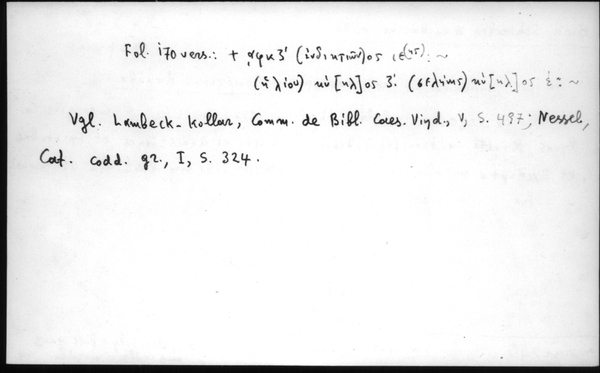 Fol. 170 vers.: + ͵αφκζ´ (ἰνδικτιῶν)ος ιε(ης): ~
(ἡλίου) κύ[κλ]ος ζ´. (σελήνης) κύ[κλ]ος ἑ: ~
Vgl. Lambeck-Kollar, Comm. de Bibl. Caes. Vind., V, S. 497; Nessel,
Cat. codd. gr., I, S. 324.